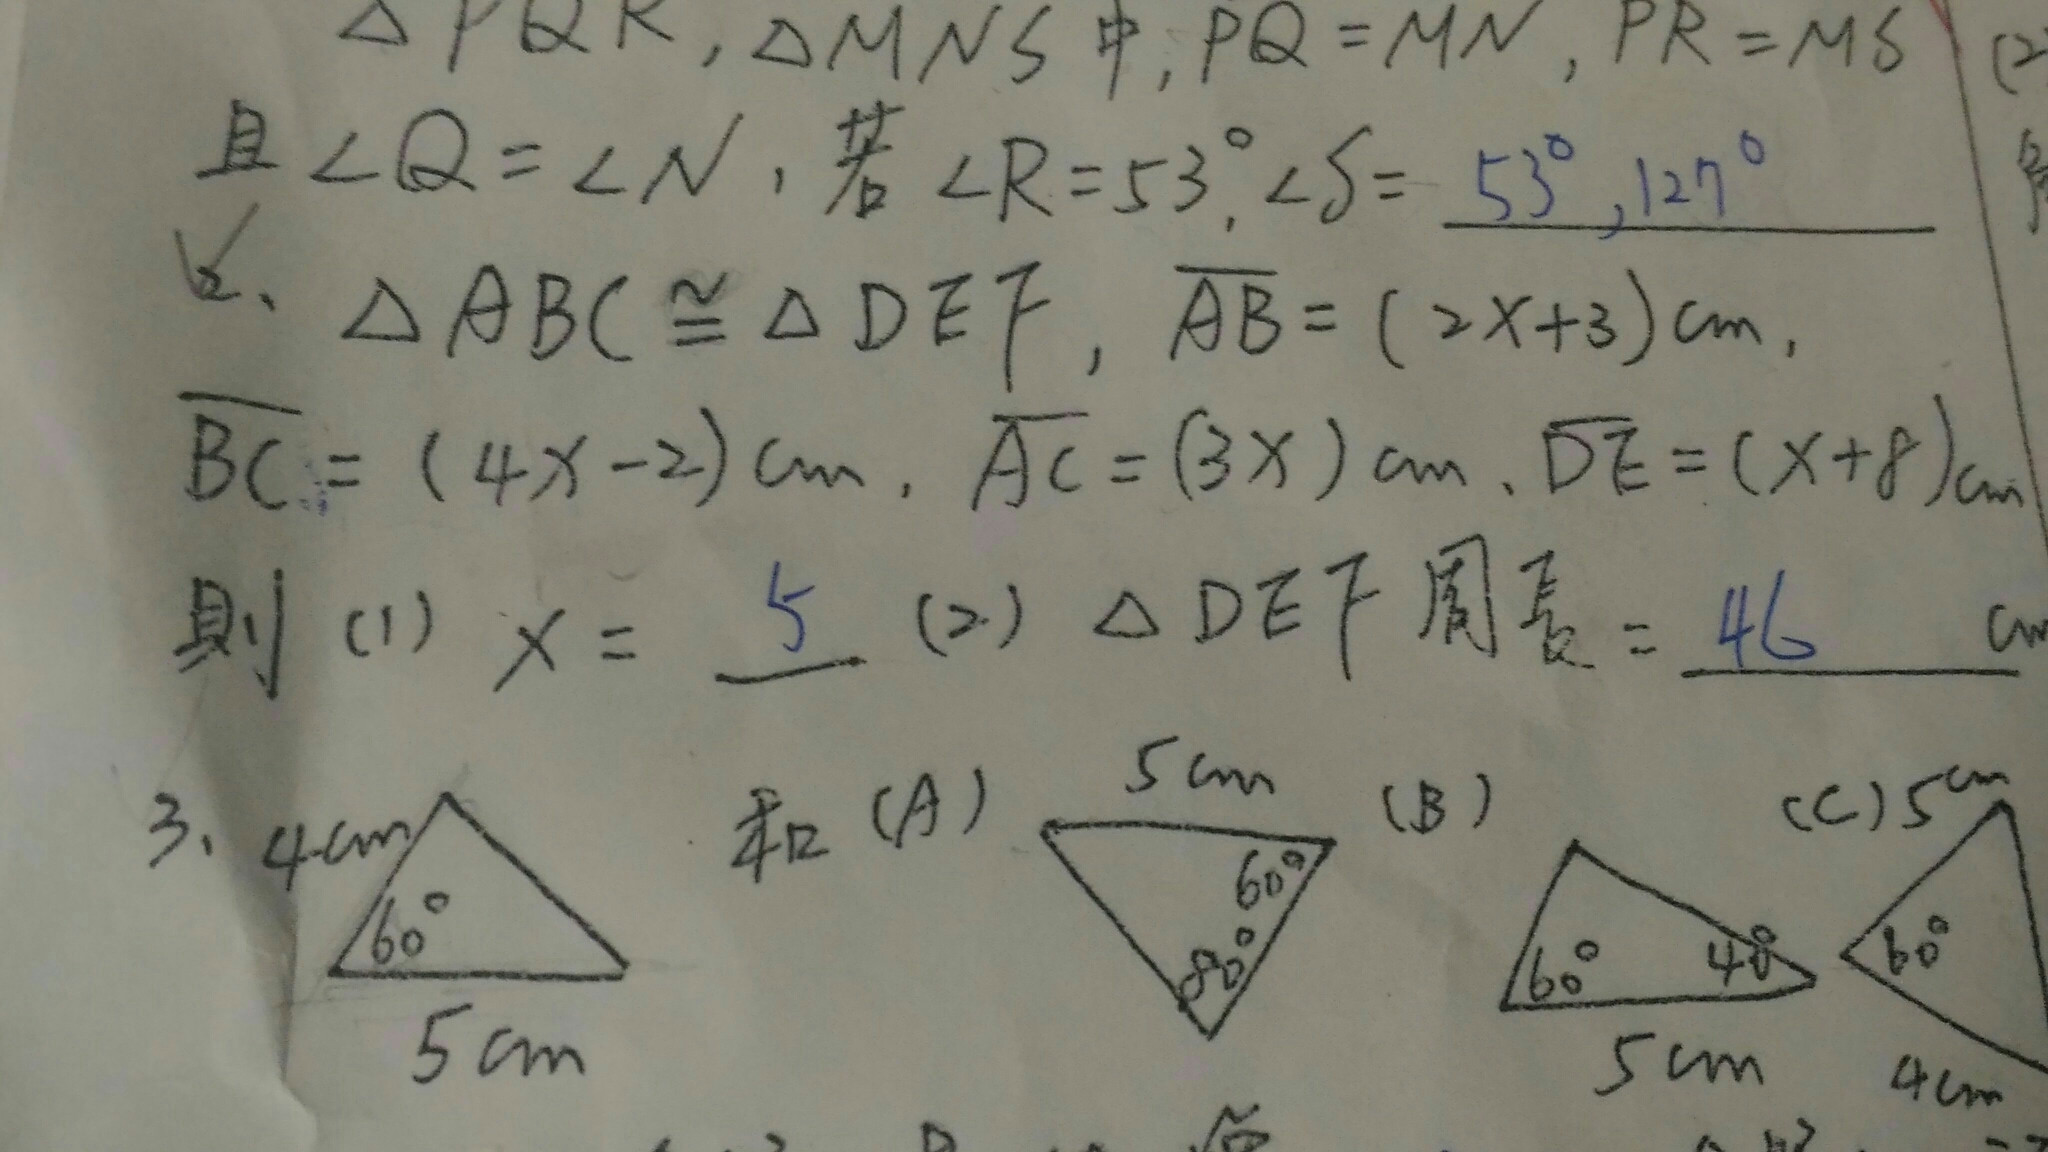 △PQR, △MNS中, PQ=MN, PR=MS (2
且∠Q=∠N, 若∠R=53°, ∠S= 53°, 127°
2. △ABC≅△DEF, AB=(2X+3)cm,
BC=(4X-2)cm, AC=(3X)cm, DE=(X+8)cm
則 (1) X= 5 (2) △DEF周長= 46 cm
3. 4cm 60° 5cm 和 (A) 5cm 60° 80° (B) 60° 40° 5cm (C) 5cm 60° 4cm